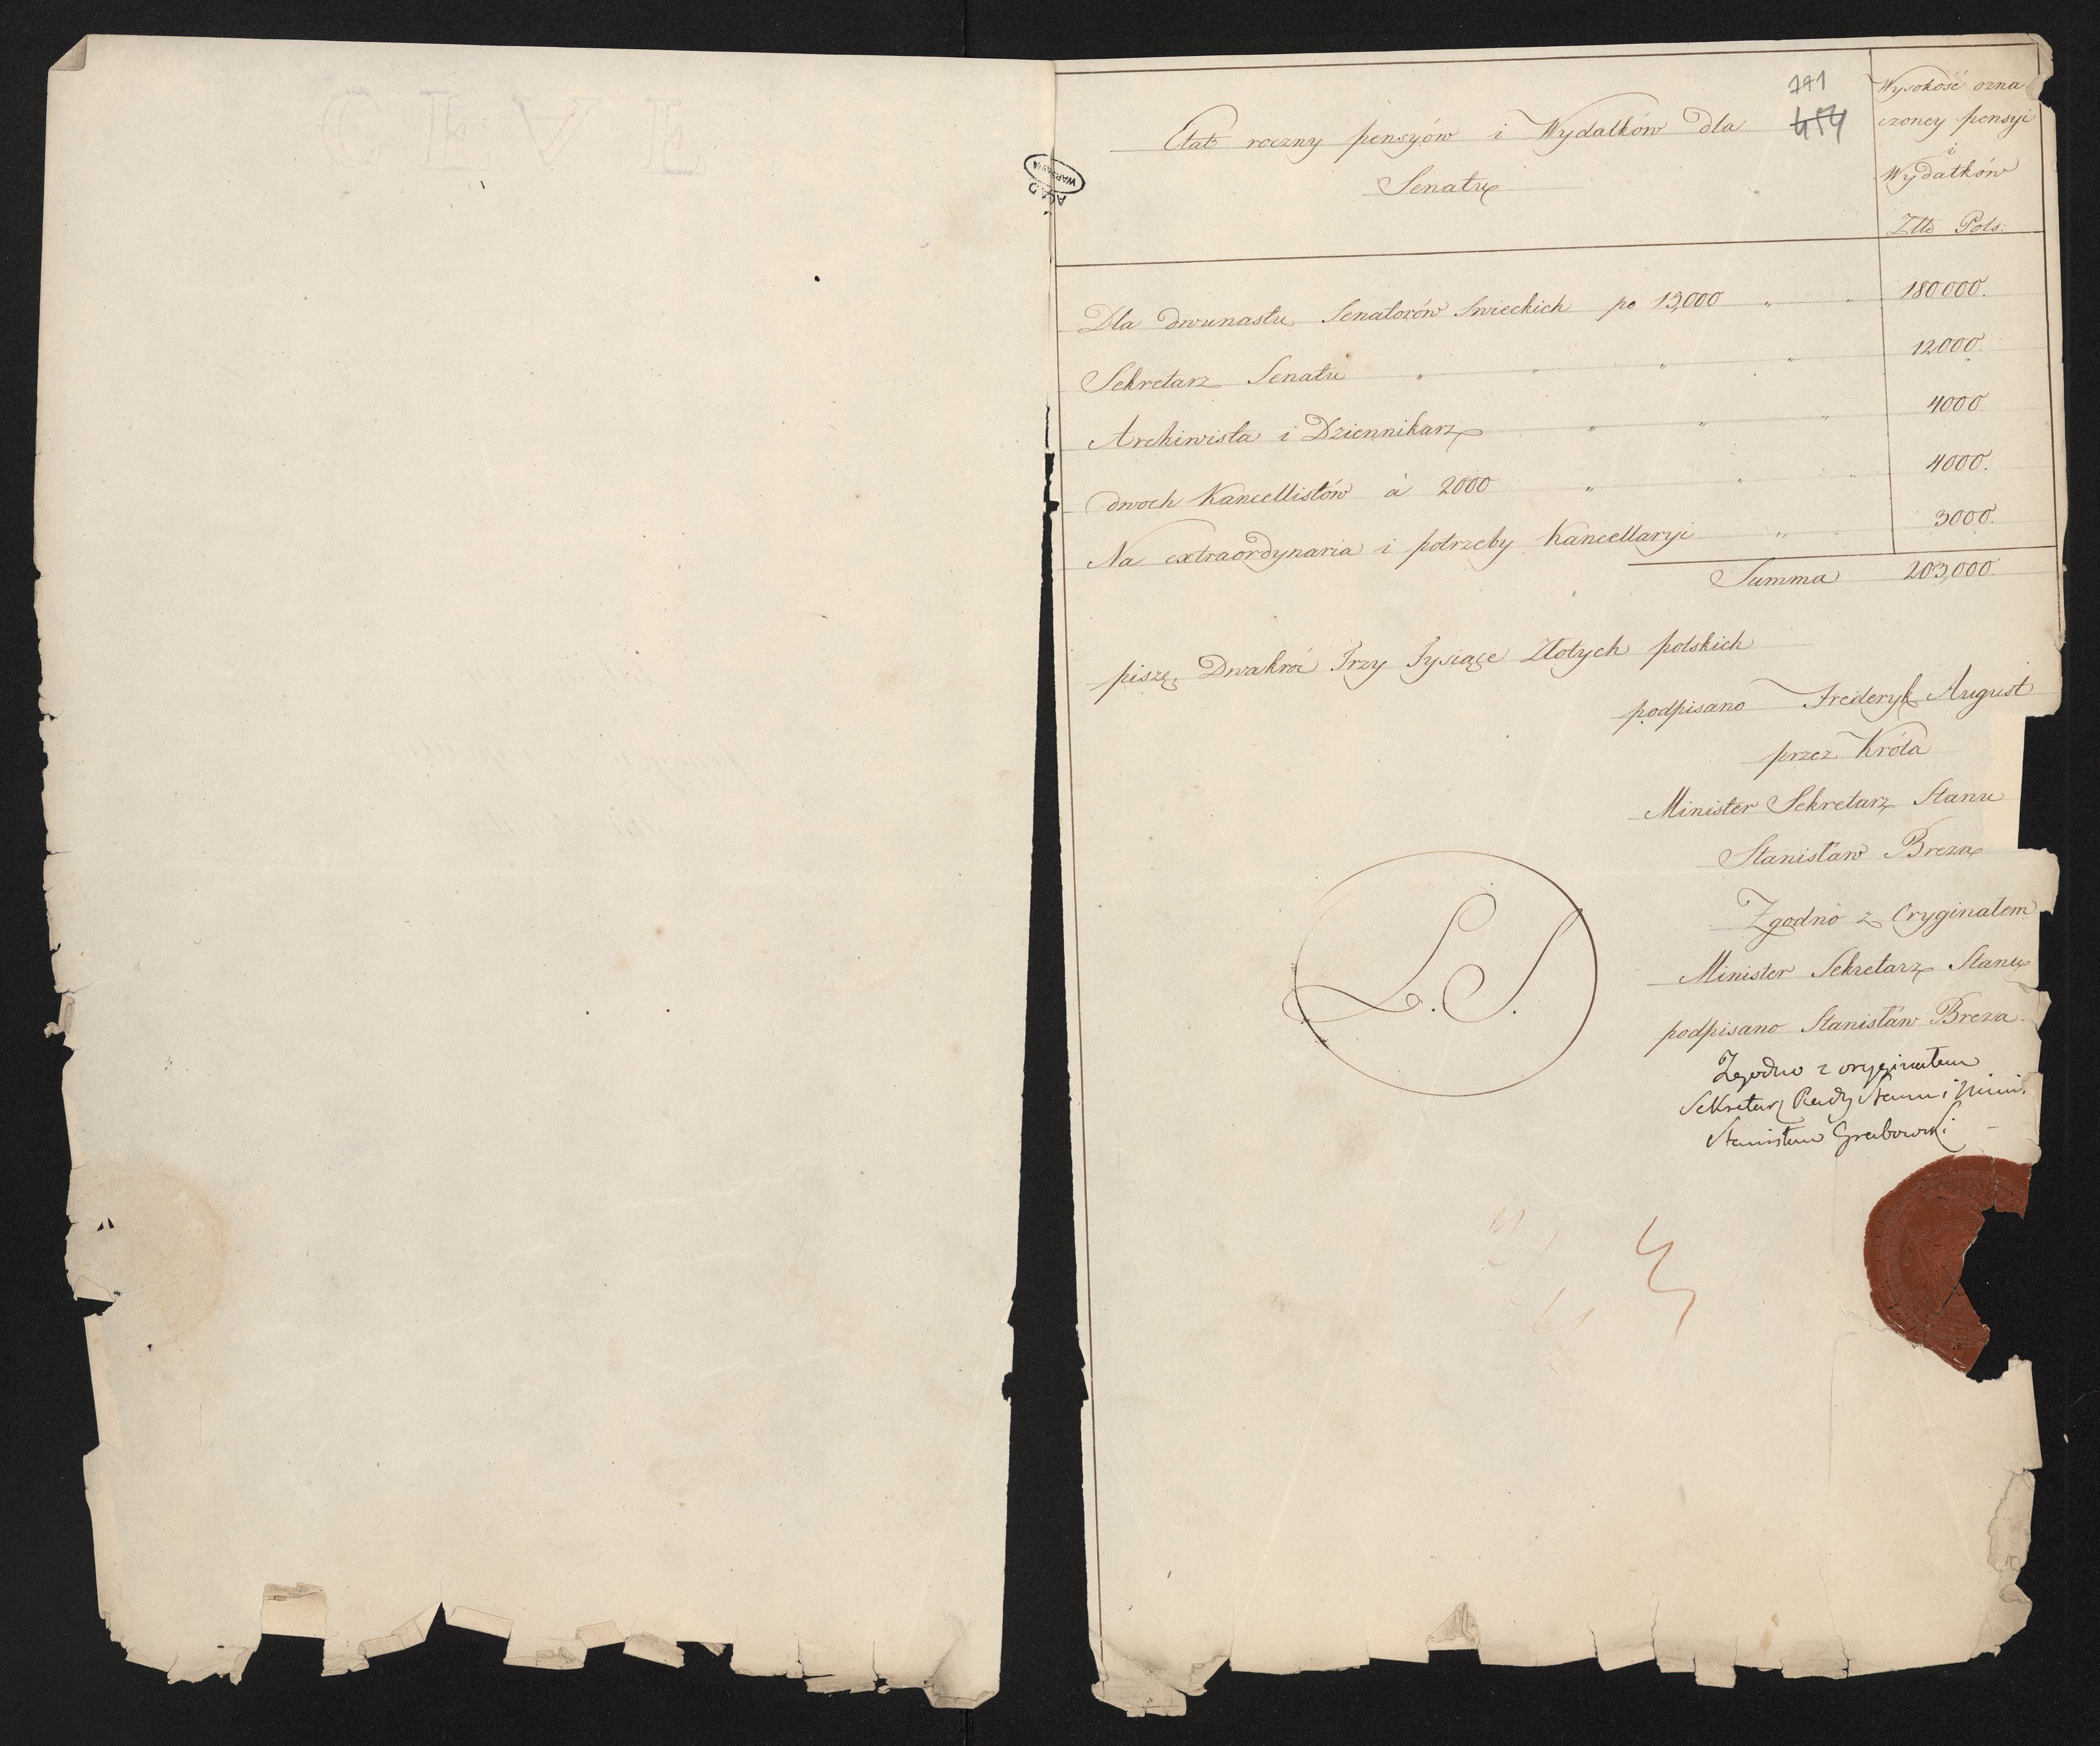 171
454
Etat roczny pensyów i Wydatków dla
Senatu
Wysokość ozna
czoney pensyi
i
Wydatków
Złtt Pols:
Dla dwunastu Senatorów Swieckich po 15,000 " " 180000.
Sekretarz Senatu " " " " 12000.
Archiwista i Dziennikarz " " " 4000.
dwoch Kancellistów à 2000 " " " 4000.
Na extraordynaria i potrzeby Kancellaryi " " 3000.
Summa 203,000.
piszę, Dwakroć Trzy Tysiące Złotych polskich
podpisano Frederyk August
przez Króla
Minister Sekretarz Stanu
Stanisław Breza
Zgodno z Oryginałem
Minister Sekretarz Stanu
podpisano Stanisław Breza.
L. S.
Zgodno z oryginałem
Sekretarz Rady Stanu i Mini.
Stanisław Grabowski
AGAD
WARSZAWA